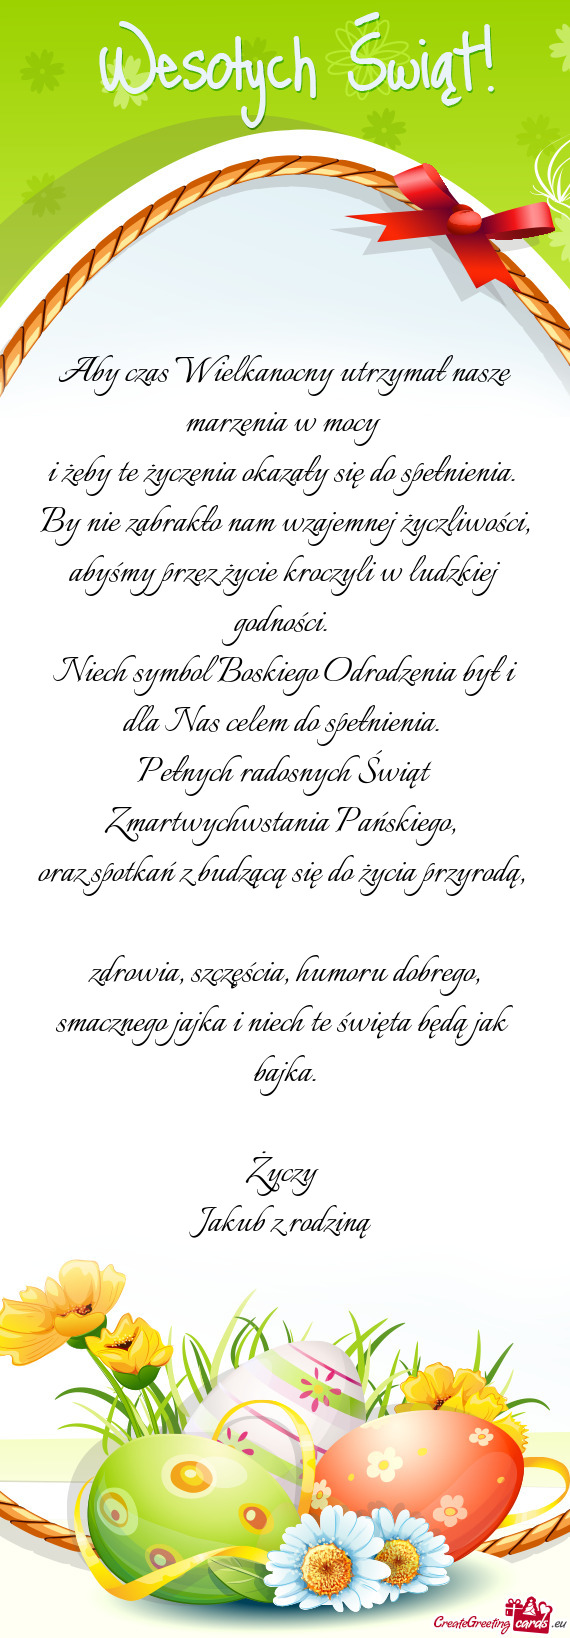 Wesołych Świąt!
Aby czas Wielkanocny utrzymał naszę
marzenia w mocy
i żeby te życzenia okazały się do spełnienia.
By nie zabrakło nam wzajemnej życzliwości,
abyśmy przez życie kroczyli w ludzkiej
godności.
Niech symbol Boskiego Odrodzenia był i
dla Nas celem do spełnienia.
Pełnych radosnych Świąt
Zmartwychwstania Pańskiego,
oraz spotkań z budzącą się do życia przyrodą,
zdrowia, szczęścia, humoru dobrego,
smacznego jajka i niech te święta będą jak
bajka.
Życzy
Jakub z rodziną
CreateGreeting cards .eu